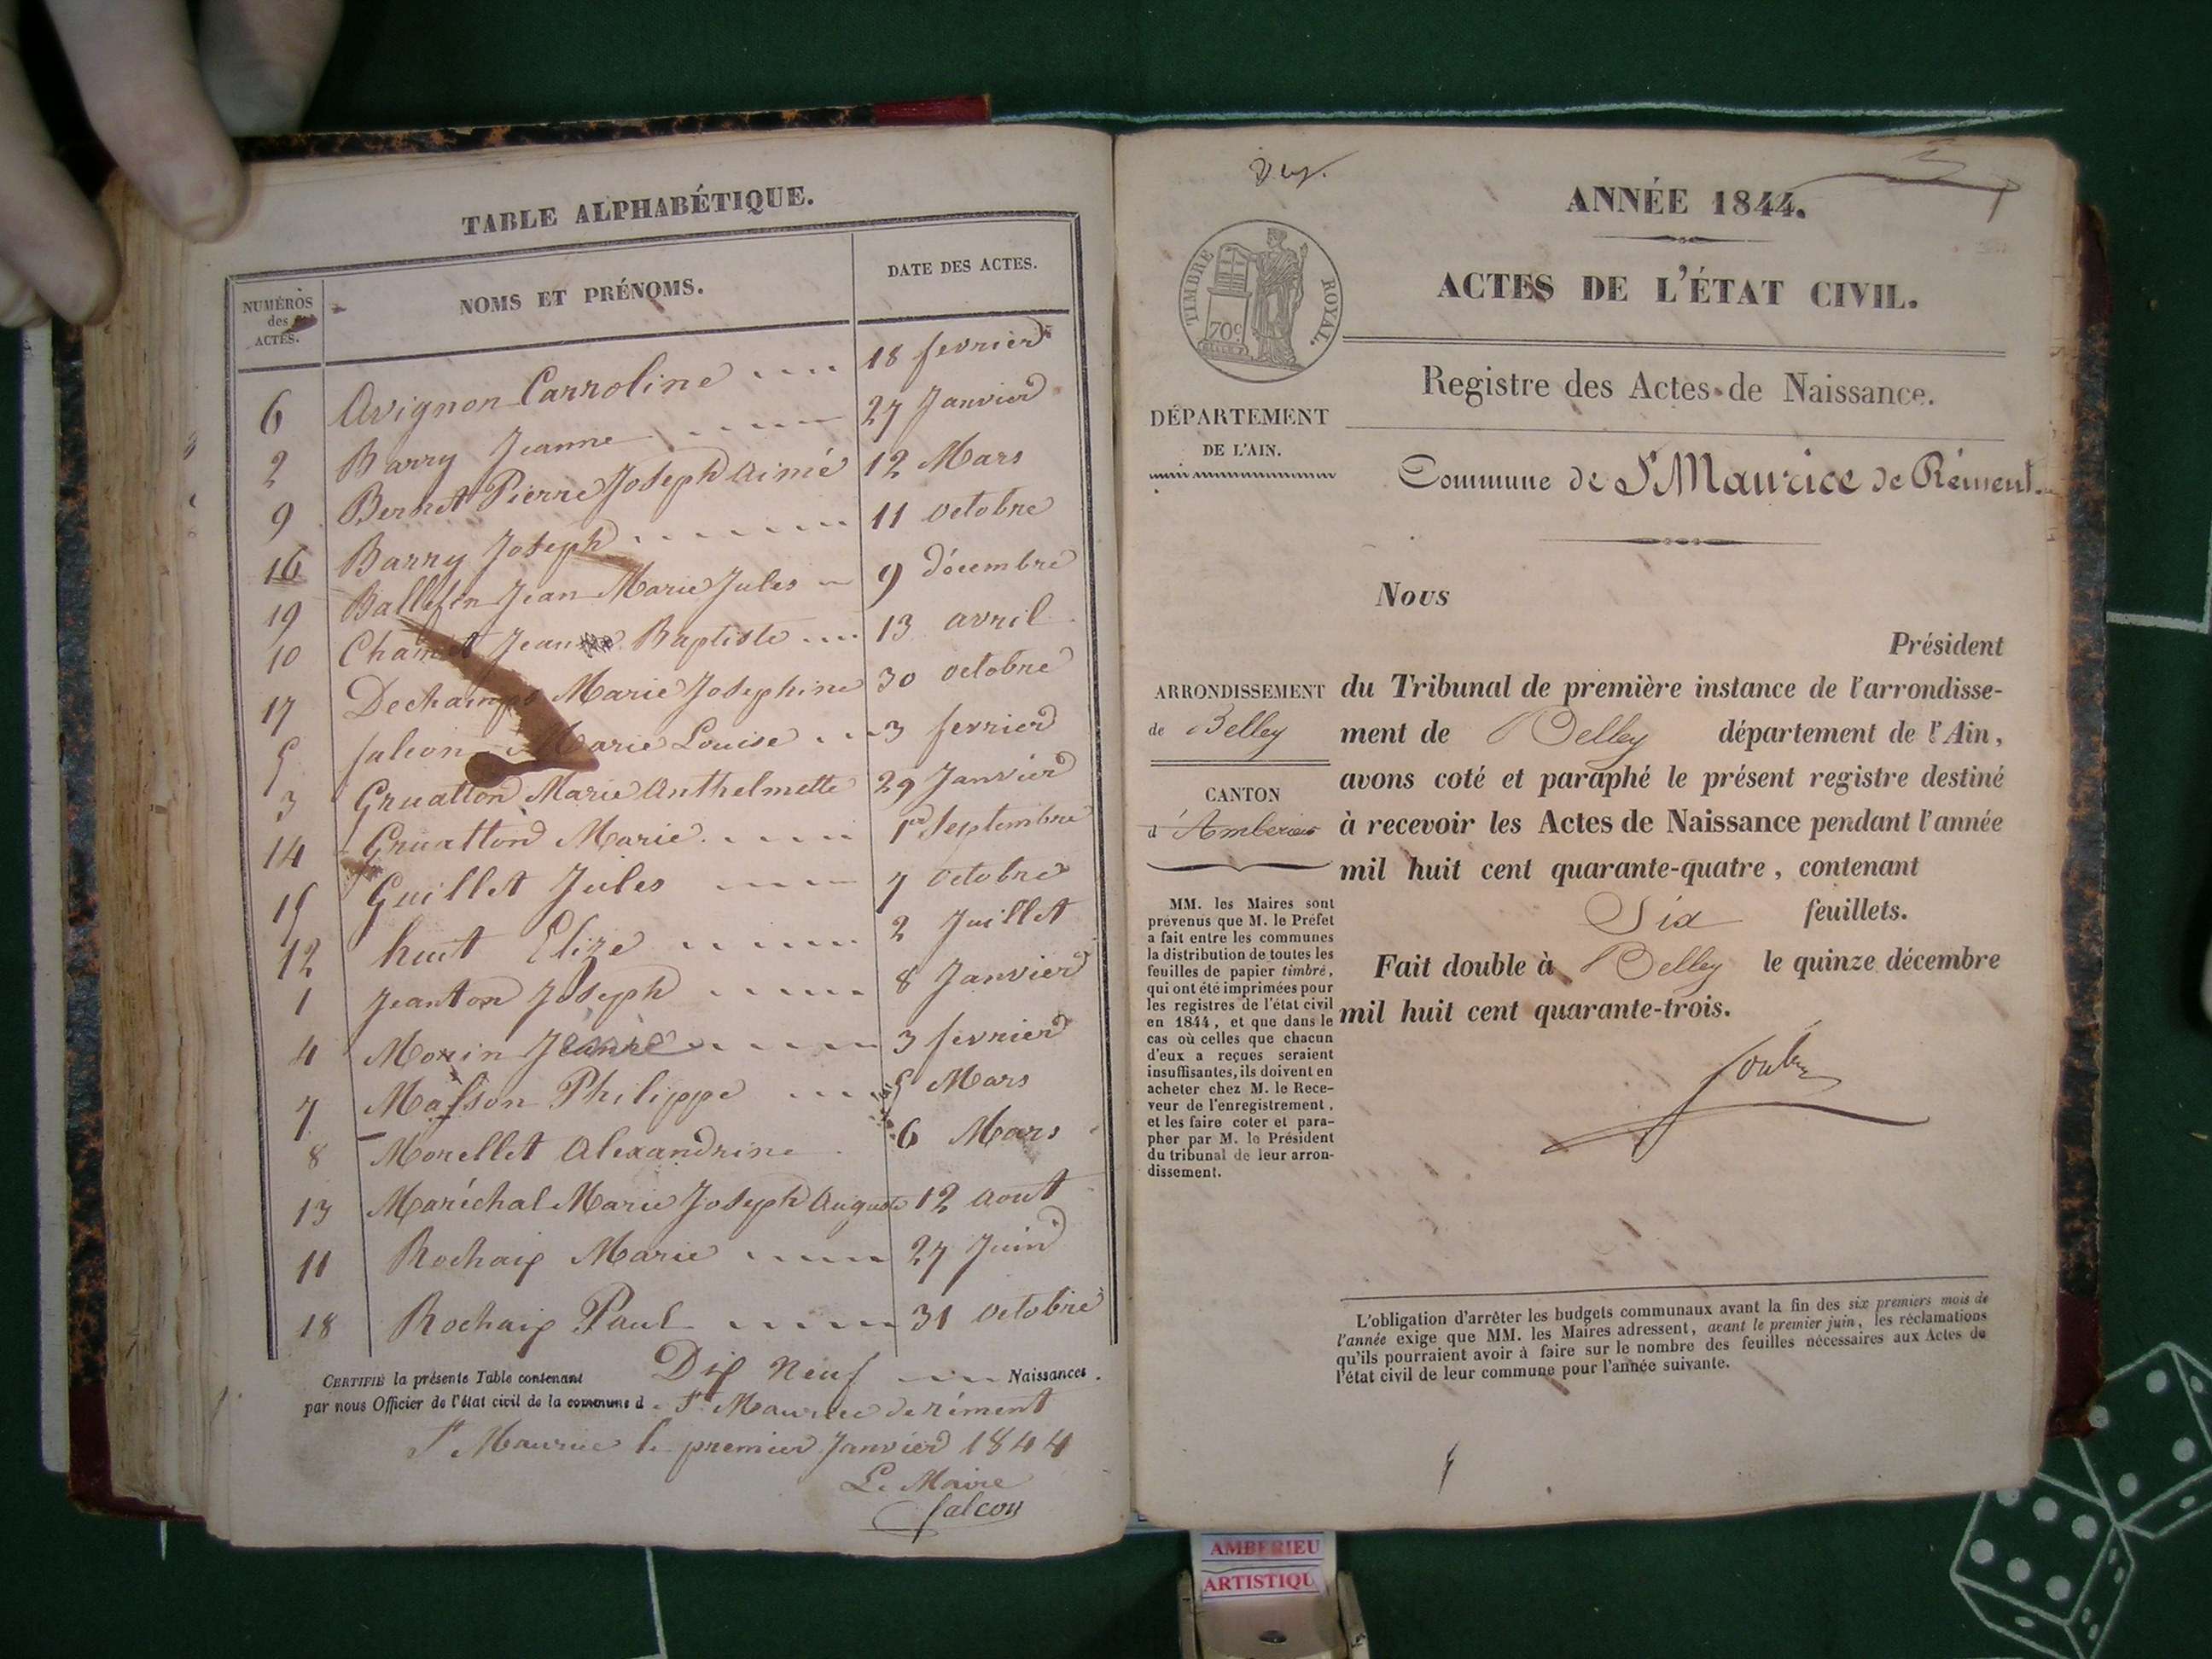 TABLE ALPHABÉTIQUE.
NUMÉROS des ACTES.
NOMS ET PRÉNOMS.
DATE DES ACTES.
6 Avignon Carroline 18 fevrier
2 Barry Jeanne 27 Janvier
9 Bernet Pierre Joseph Aimé 12 Mars
16 Barry Joseph 11 octobre
19 Ballefin Jean Marie Jules 9 décembre
10 Jean Baptiste 13 avril
17 Dechamps Marie Josephine 30 octobre
5 falcon Marie Louise 3 fevrier
3 Gruatton Marie Anthelmette 29 Janvier
14 Gruatton Marie 1er Septembre
15 Guillet Jules 7 octobre
12 hunt Elize 2 Juillet
1 Jeanton Joseph 8 Janvier
4 Morin Jeanne 3 fevrier
7 Masson Philippe 5 Mars
8 Morellet Alexandrine 6 Mars
13 Maréchal Marie Joseph Auguste 12 aout
11 Rochaix Marie 27 Juin
18 Rochaix Paul 31 octobre
CERTIFIÉ la présente Table contenant Dix Neuf Naissances.
par nous Officier de l'état civil de la commune d St Maurice de rément
St Maurice le premier Janvier 1844
Le Maire
falcon
ANNÉE 1844.
TIMBRE ROYAL.
70c
ACTES DE L'ÉTAT CIVIL.
Registre des Actes de Naissance.
DÉPARTEMENT
DE L'AIN.
Commune de St Maurice de Rément.
Nous
Président
ARRONDISSEMENT
de Belley
CANTON
d'Amberieu
du Tribunal de première instance de l'arrondisse-
ment de Belley département de l'Ain,
avons coté et paraphé le présent registre destiné
à recevoir les Actes de Naissance pendant l'année
mil huit cent quarante-quatre, contenant
Six feuillets.
Fait double à Belley le quinze décembre
mil huit cent quarante-trois.
MM. les Maires sont
prévenus que M. le Préfet
a fait entre les communes
la distribution de toutes les
feuilles de papier timbré,
qui ont été imprimées pour
les registres de l'état civil
en 1844, et que dans le
cas où celles que chacun
d'eux a reçues seraient
insuffisantes, ils doivent en
acheter chez M. le Rece-
veur de l'enregistrement,
et les faire coter et para-
pher par M. le Président
du tribunal de leur arron-
dissement.
L'obligation d'arrêter les budgets communaux avant la fin des six premiers mois de
l'année exige que MM. les Maires adressent, avant le premier juin, les réclamations
qu'ils pourraient avoir à faire sur le nombre des feuilles nécessaires aux Actes de
l'état civil de leur commune pour l'année suivante.
AMBERIEU
ARTISTIQU